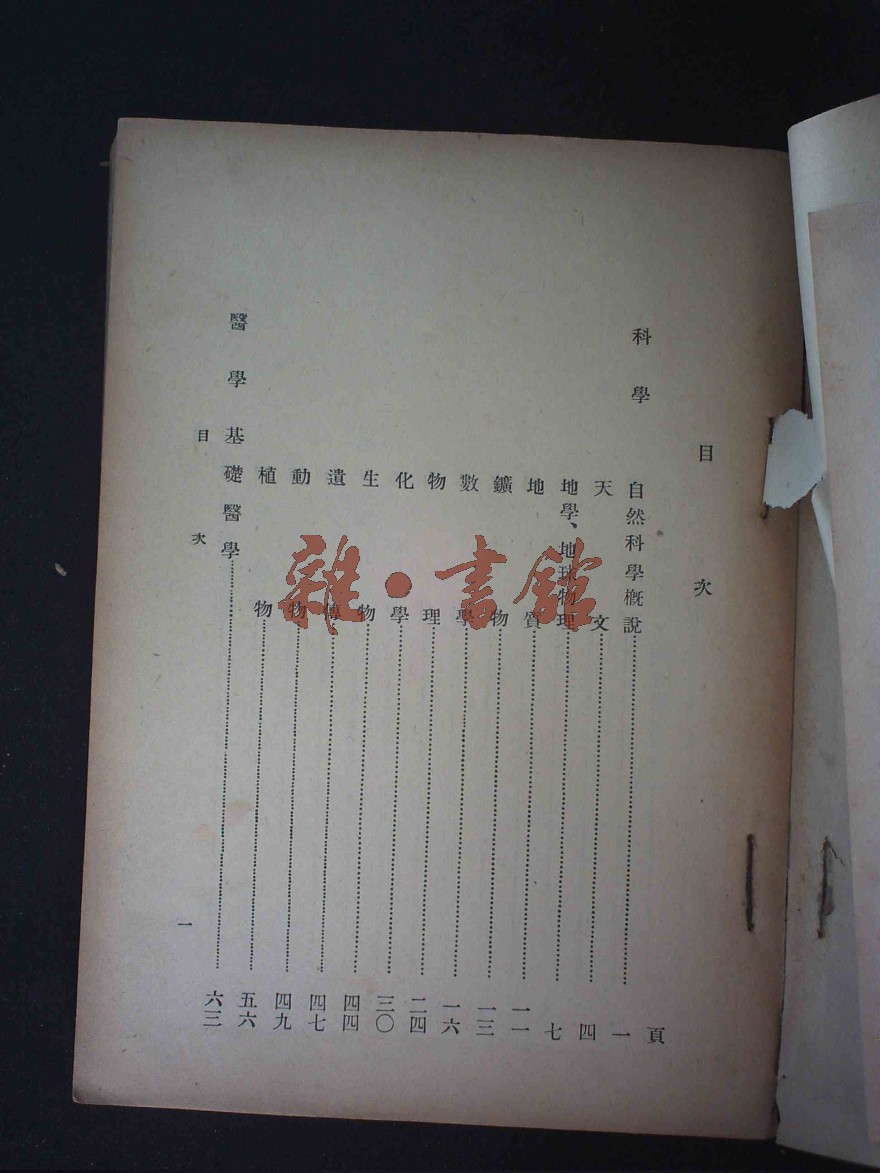 目次
頁
科學
自然科學概説……一
天文……四
地學、地球物理……七
地質……一一
鑛物……一三
數學……一六
物理……二四
化學……三〇
生物……四四
遺傳……四七
動物……四九
植物……五六
醫學
基礎醫學……六三
目次
一
雜·書館